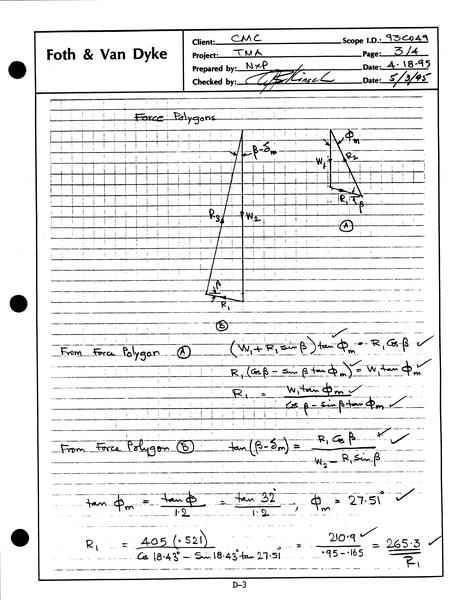 Foth & Van Dyke
Client: CMC Scope I.D.: 93C049
Project: TMA Page: 3/4
Prepared by: NXP Date: 4-18-95
Checked by: Date: 5/3/95
Force Polygons
β-δm
R3
W2
β
R1
B
ϕm
W1
R2
R1
β
A
From Force Polygon A (W1 + R1 sinβ) tan ϕm = R1 Cos β ✓
R1 (Cos β - sin β tan ϕm) = W1 tan ϕm ✓
R1 = W1 tan ϕm / Cos β - sin β tan ϕm ✓
From Force Polygon B tan(β-δm) = R1 Cos β / W2 - R1 sin β ✓
tan ϕm = tan ϕ / 1.2 = tan 32° / 1.2 ; ϕm = 27.51° ✓
R1 = 405 (.521) / Cos 18.43° - Sin 18.43° tan 27.51° = 210.9 / .95-.165 = 265.3 ✓
R1
D-3